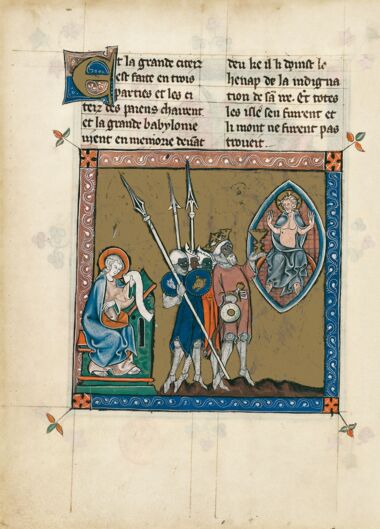 Et la grande citeiz
est faite en trois
parties et les ci
teiz des paiens chaurent
et la grande babylonie
uient en memoire deuāt
deu ke il li doinst le
henap de la indigna
tion de sā ire. Et totes
les isle sen fuirent et
li mont ne furent pas
troueit.